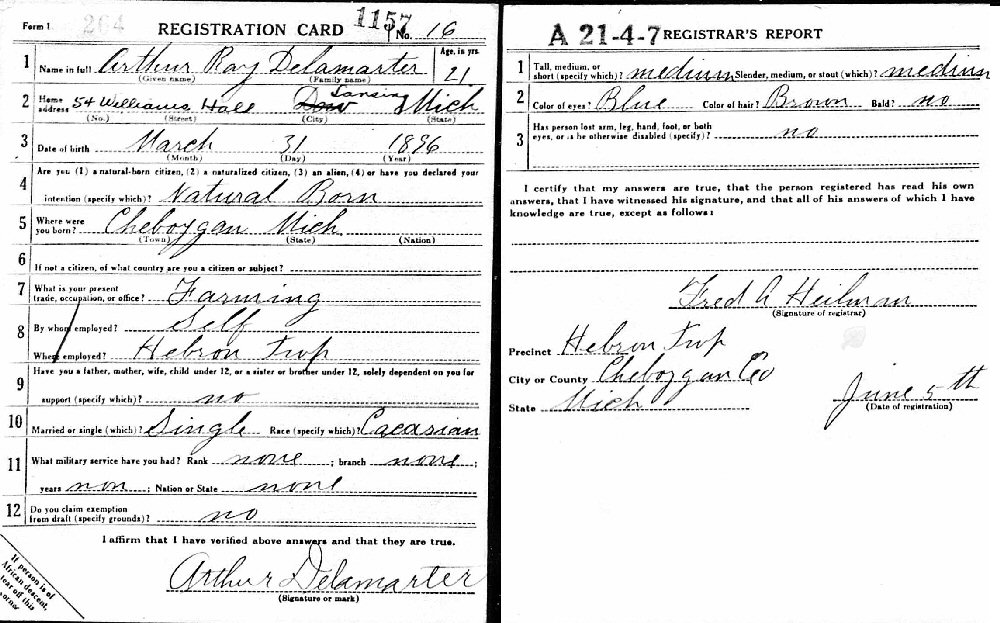 Form 1 264 REGISTRATION CARD 1157 No. 16
1 Name in full Arthur Ray Delamarter Age, in yrs. 21
(Given name) (Family name)
2 Home address 54 Williams Hall Lansing Mich
(No.) (Street) (City) (State)
3 Date of birth March 31 1896
(Month) (Day) (Year)
4 Are you (1) a natural-born citizen, (2) a naturalized citizen, (3) an alien, (4) or have you declared your
intention (specify which)? Natural Born
5 Where were you born? Cheboygan Mich
(Town) (State) (Nation)
6 If not a citizen, of what country are you a citizen or subject?
7 What is your present trade, occupation, or office? Farming
8 By whom employed? Self
Where employed? Hebron Twp
9 Have you a father, mother, wife, child under 12, or a sister or brother under 12, solely dependent on you for
support (specify which)? no
10 Married or single (which)? Single Race (specify which)? Cacasian
11 What military service have you had? Rank none ; branch none ;
years non ; Nation or State none
12 Do you claim exemption from draft (specify grounds)? no
I affirm that I have verified above answers and that they are true.
Arthur Delamarter
(Signature or mark)
If person is of
African descent,
tear off this
corner
A 21-4-7 REGISTRAR'S REPORT
1 Tall, medium, or short (specify which)? medium Slender, medium, or stout (which)? medium
2 Color of eyes? Blue Color of hair? Brown Bald? no
3 Has person lost arm, leg, hand, foot, or both eyes, or is he otherwise disabled (specify)? no
I certify that my answers are true, that the person registered has read his own
answers, that I have witnessed his signature, and that all of his answers of which I have
knowledge are true, except as follows:
Fred A Heilman
(Signature of registrar)
Precinct Hebron Twp
City or County Cheboygan Co
State Mich
June 5th
(Date of registration)